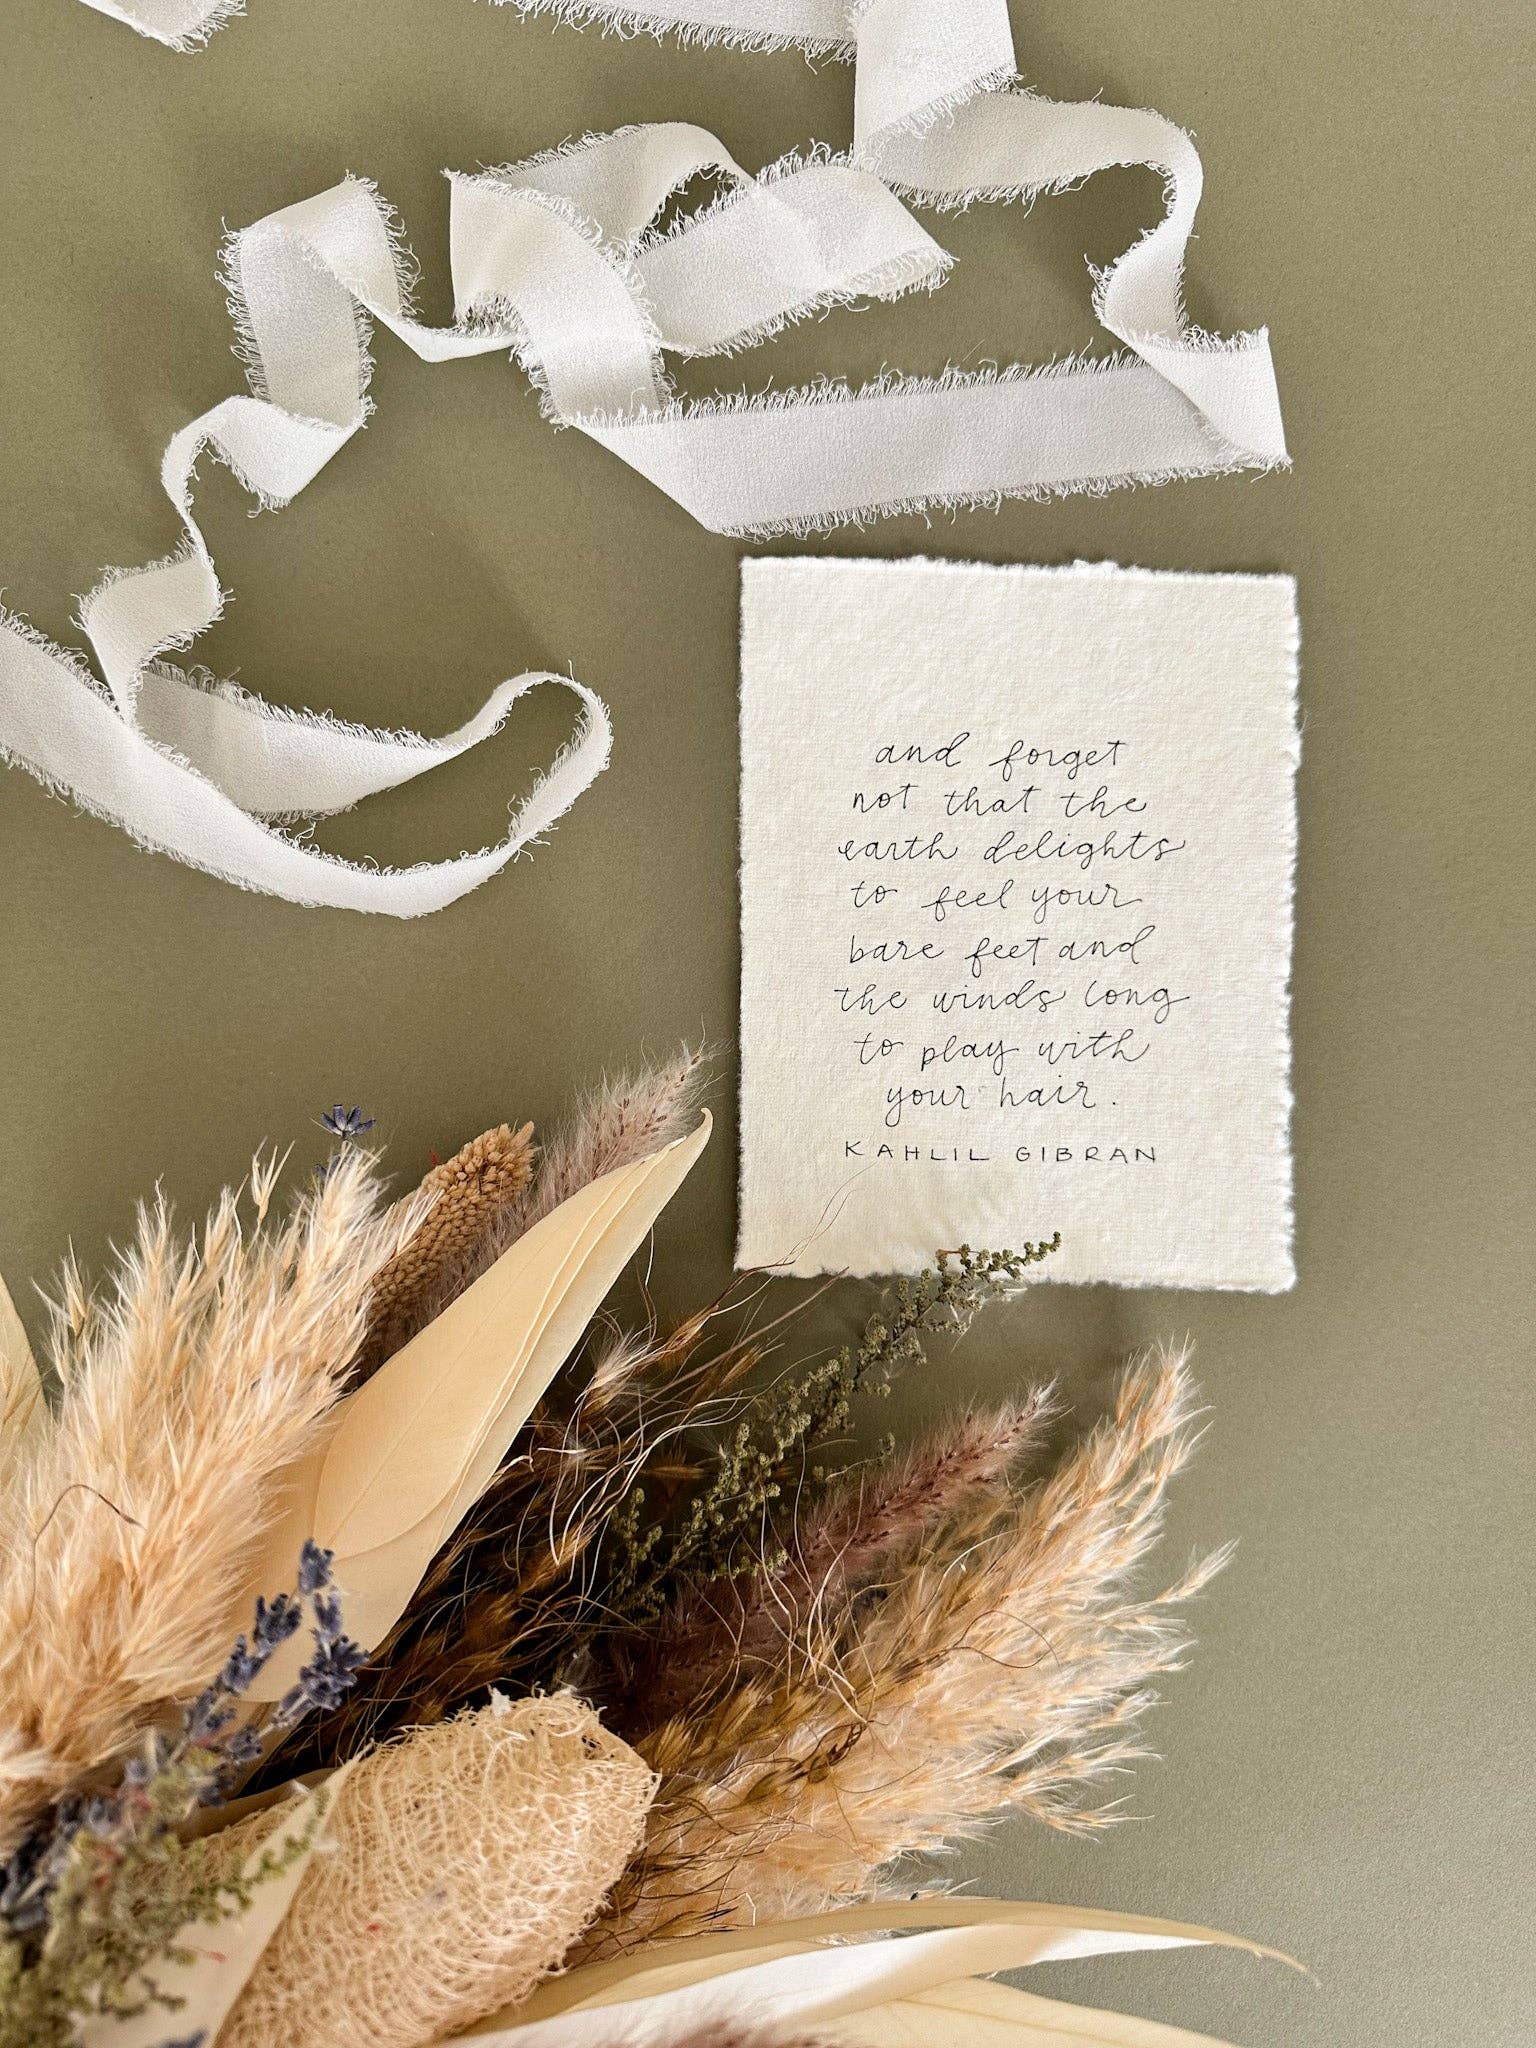 and forget
not that the
earth delights
to feel your
bare feet and
the winds long
to play with
your hair.
KAHLIL GIBRAN